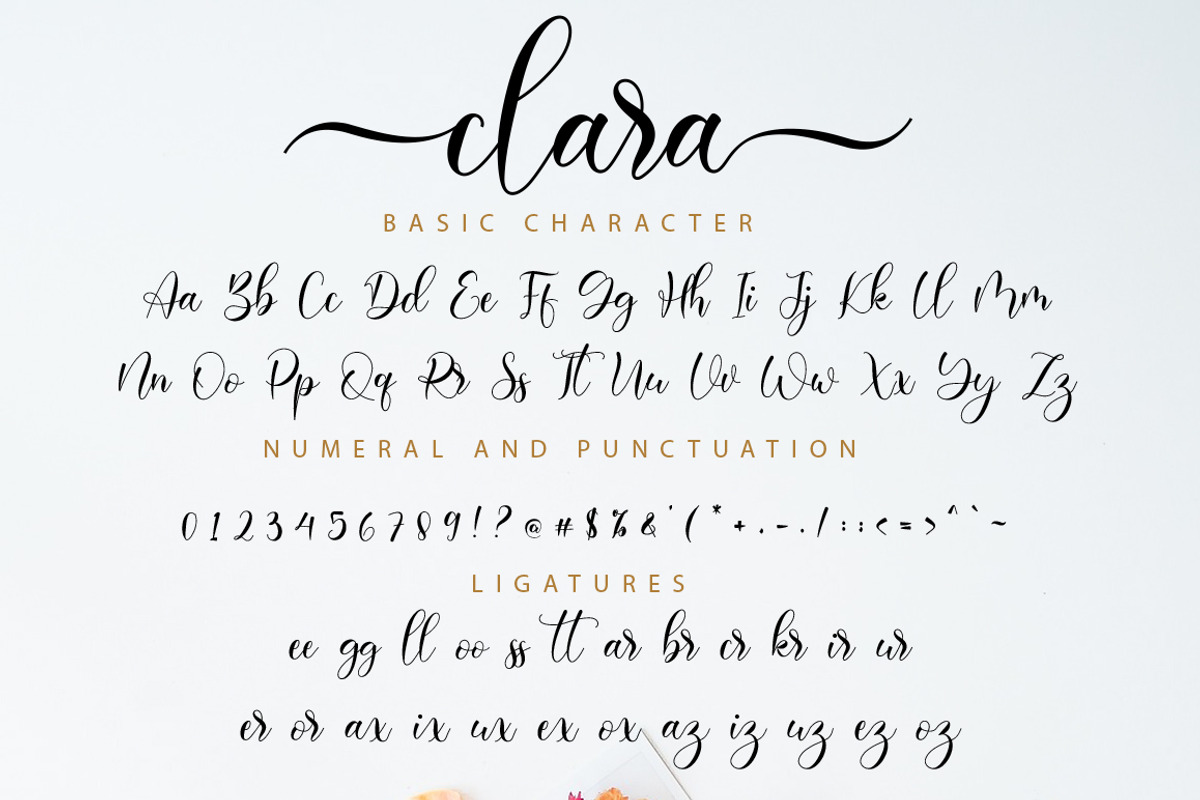 clara
BASIC CHARACTER
Aa Bb Cc Dd Ee Ff Gg Hh Ii Jj Kk Ll Mm
Nn Oo Pp Qq Rr Ss Tt Uu Vv Ww Xx Yy Zz
NUMERAL AND PUNCTUATION
0 1 2 3 4 5 6 7 8 9 ! ? @ # $ % & ' ( * + . - . / : : < = > ^ ` ~
LIGATURES
ee gg ll oo ss tt ar br cr kr ir ur
er or ax ix ux ex ox az iz uz ez oz